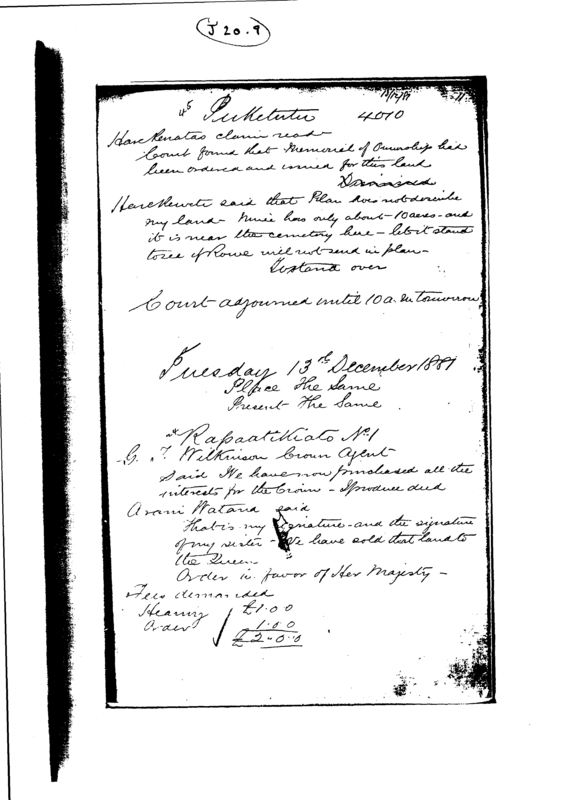 J 20.9
12/12/81
Puketutu 4070
Hare Renatas claim read
Court found that Memorial of Ownership had
been ordered and issued for this land
Dismissed
Hare Rewete said that Plan does not describe
my land - Mine has only about 10 acres - and
it is near the cemetery here - let it stand
to see if Rowe will not send in plan -
To stand over
Court adjourned until 10 a.m tomorrow
Tuesday 13th December 1881
Place The Same
Present The Same
Rapaatikiato No 1
G. T. Wilkinson Crown Agent
Said We have now purchased all the
interests for the Crown - I produce deed
Arani Watana said
That is my signature - and the signature
of my sister - We have sold that land to
the Queen
Order in favor of Her Majesty -
Fees demanded
Hearing £1.0.0
Order 1.0.0
£2.0.0